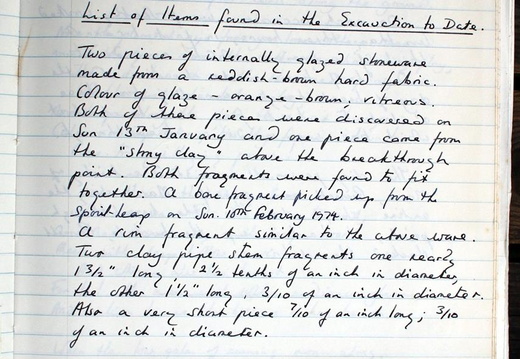 List of Items found in the Excavation to Date.
Two pieces of internally glazed stoneware
made from a reddish-brown hard fabric.
Colour of glaze - orange-brown, vitreous.
Both of these pieces were discovered on
Sun 13th January and one piece came from
the "stony clay" above the breakthrough
point. Both fragments were found to fit
together. A bone fragment picked up from the
Spoil-heap on Sun. 10th February 1974.
A rim fragment similar to the above ware.
Two clay pipe stem fragments one nearly
1 3/2" long, 2 1/2 tenths of an inch in diameter,
the other 1 1/2" long, 3/10 of an inch in diameter.
Also a very short piece 7/10 of an inch long; 3/10
of an inch in diameter.